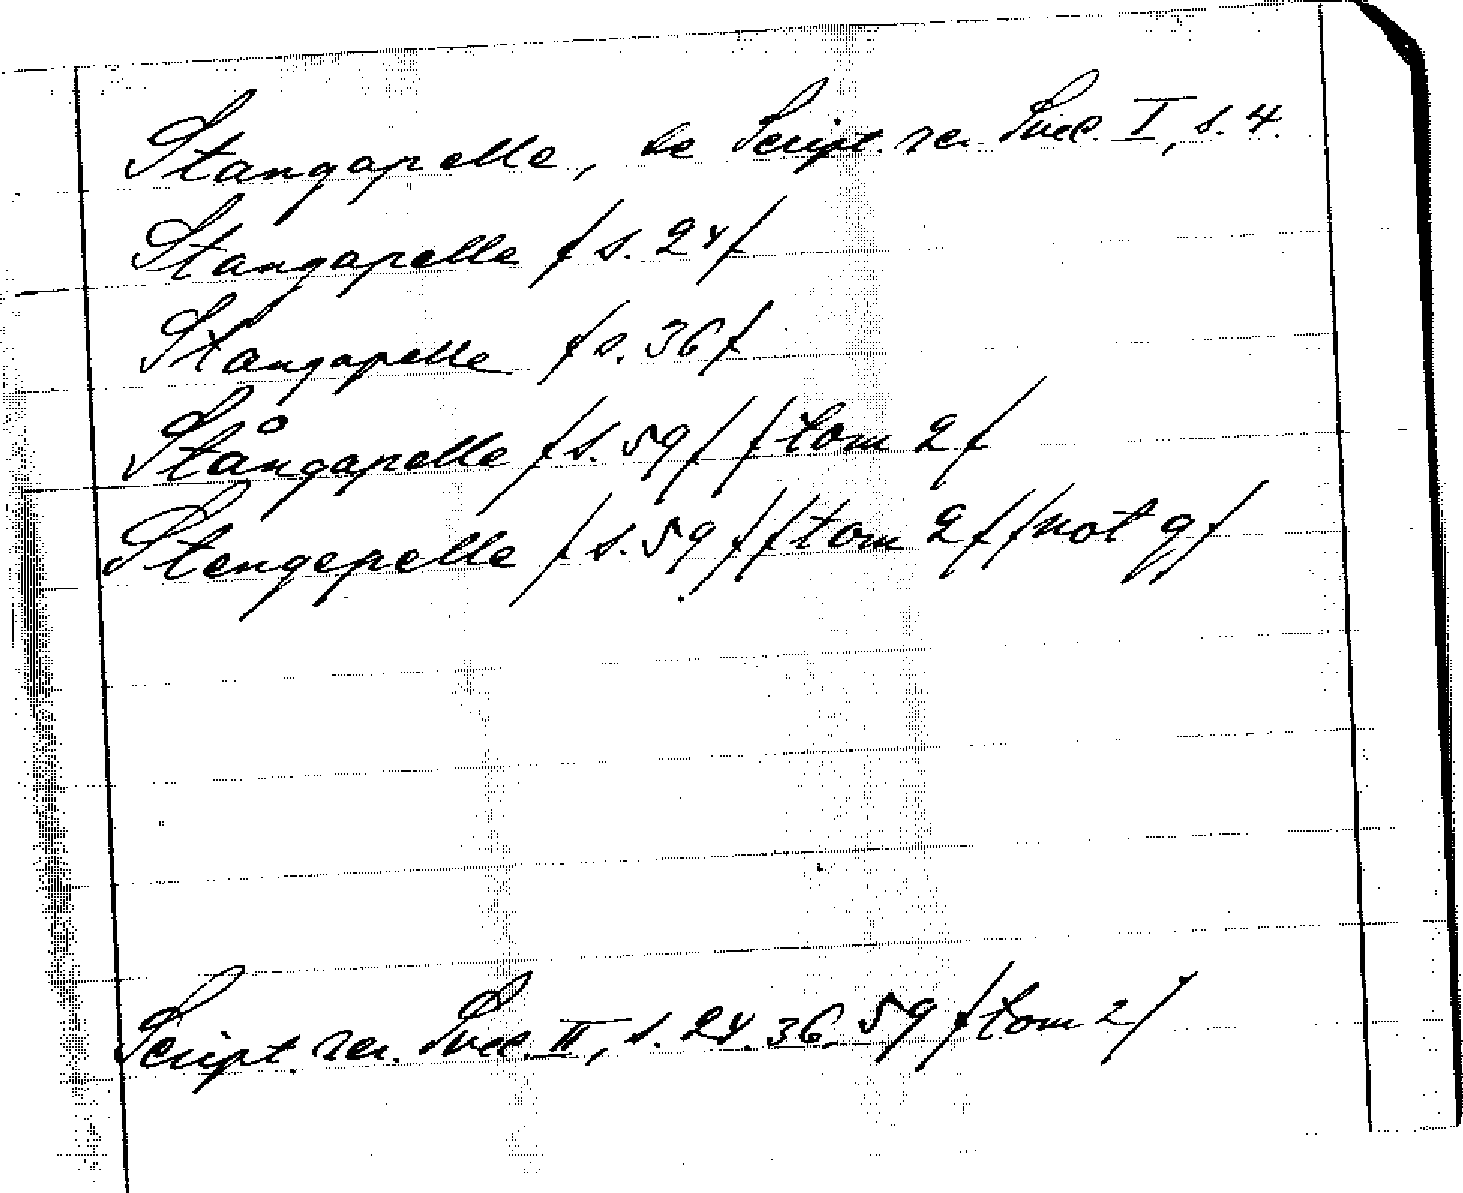 Stangapelle, se Script. rer. Svec. I, s. 4.
Stangapelle / s. 24/
Stangapelle / s. 36/
Stångapelle / s. 59/ / tom 2/
Stengepelle / s. 59 / / tom 2/ / not q/
Script. rer. Svec. II, s. 24. 36. 59 / tom 2/